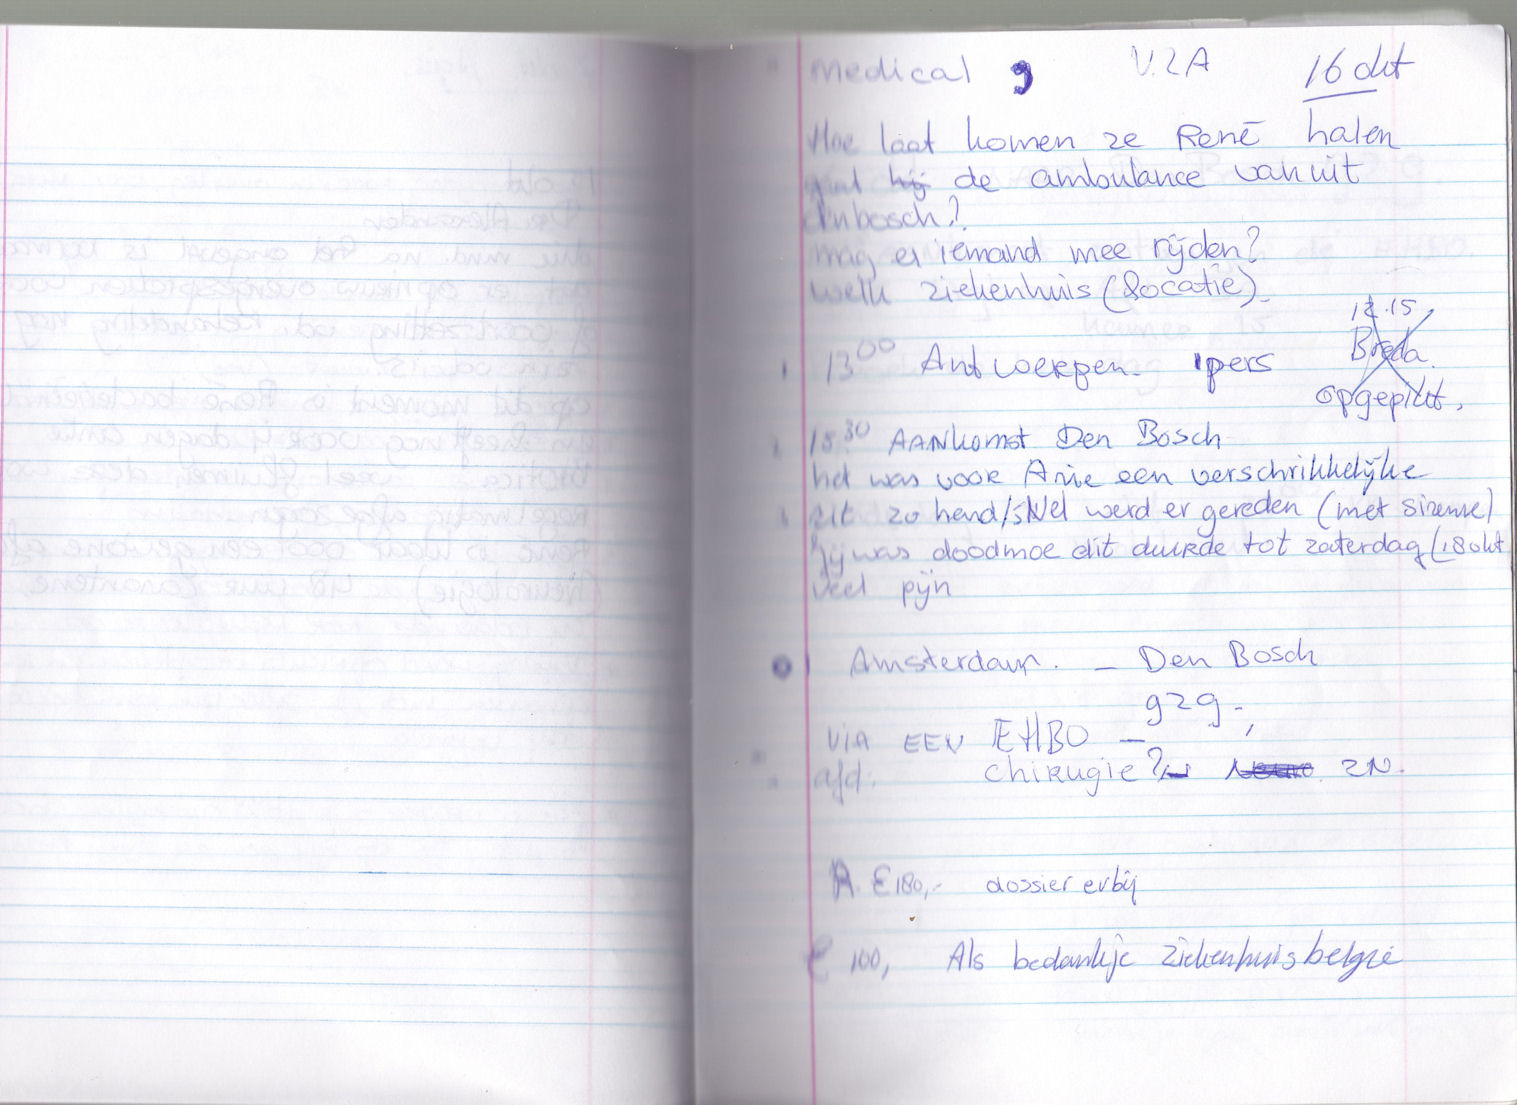 medical V.Z.A 16 okt
Hoe laat komen ze René halen
gaat hij de ambulance vanuit
denbosch?
mag er iemand mee rijden?
welk ziekenhuis (Locatie).
12.15
13.00 Antwerpen. 1 pers Breda.
opgepikt.
15.30 AANkomst Den Bosch
het was voor Arie een verschrikkelijke
rit zo hard/sNel werd er gereden (met sirenne)
hij was doodmoe dit duurde tot zaterdag (18 okt
veel pijn
Amsterdam. – Den Bosch
gzg-,
VIA EEN EHBO –
afd. chirugie? ZN.
A. €180,- dossier erbij
€ 100, Als bedankje ziekenhuis belgie